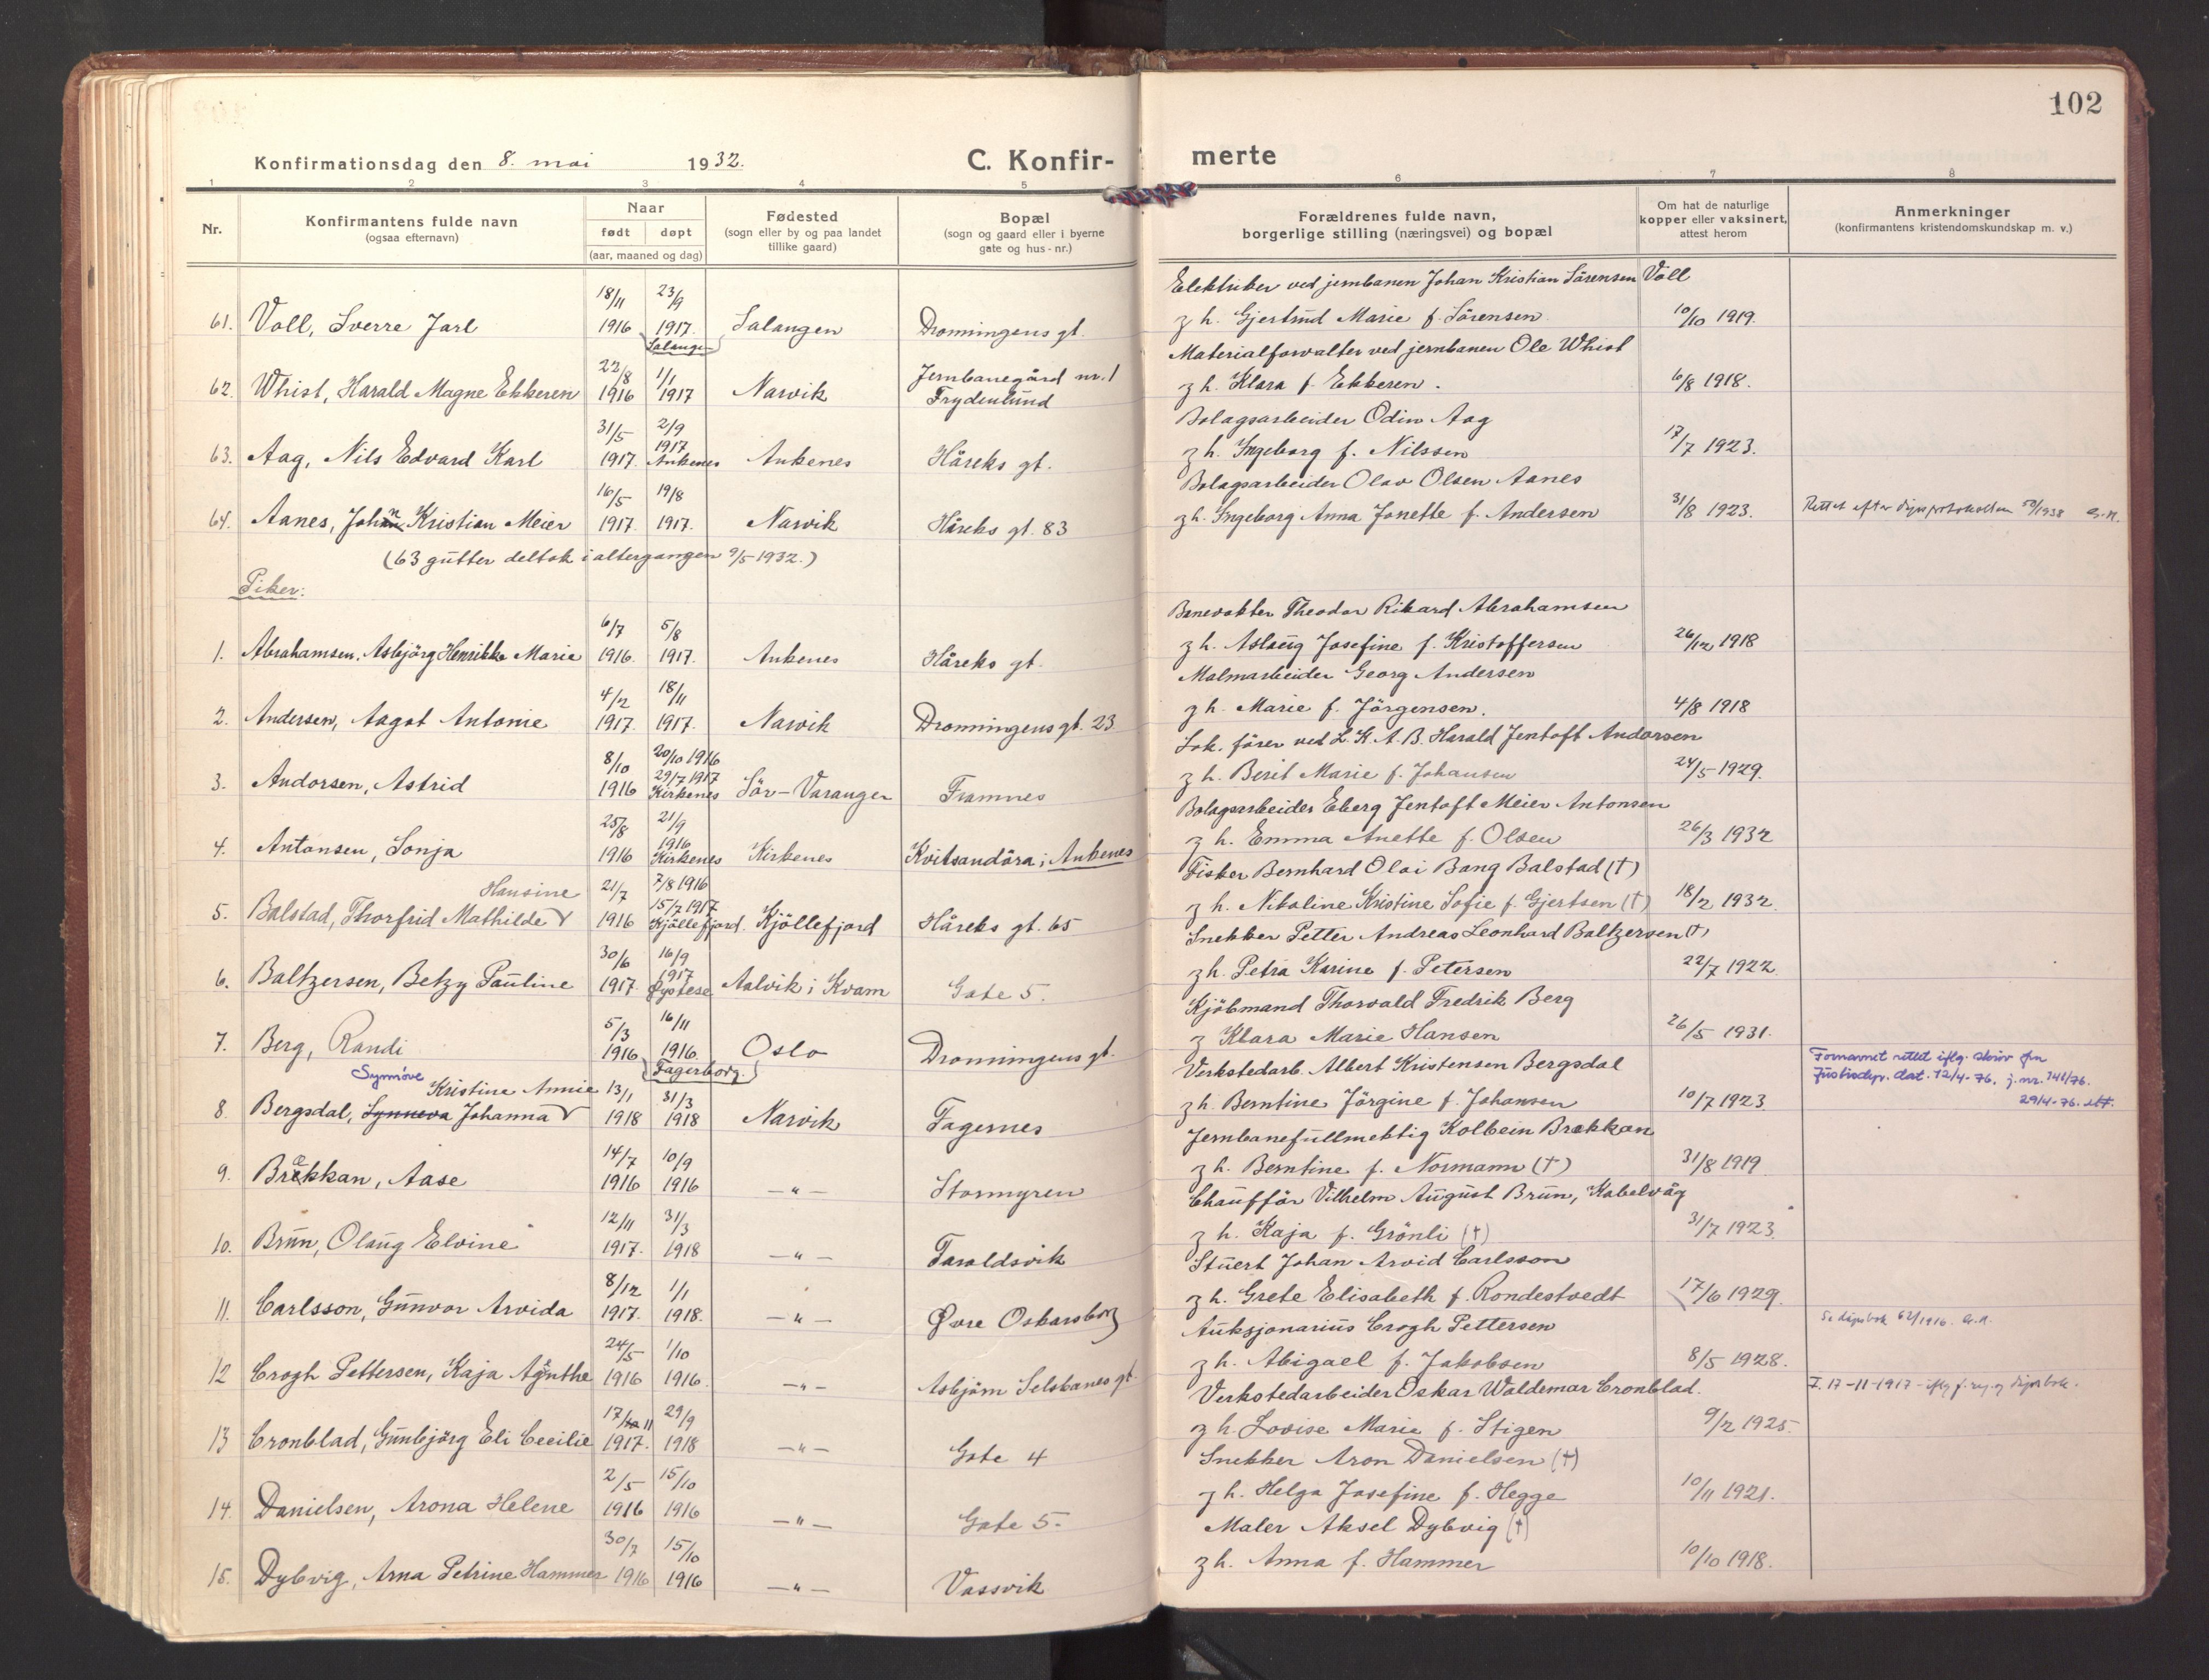 102
Konfirmationsdag den 8. mai 1932. C. Konfir- merte
1 2 3 4 5 6 7 8
Nr.
Konfirmantens fulde navn
(ogsaa efternavn)
Naar
født døpt
(aar, maaned og dag)
Fødested
(sogn eller by og paa landet
tillike gaard)
Bopæl
(sogn og gaard eller i byerne
gate og hus-nr.)
Forældrenes fulde navn,
borgerlige stilling (næringsvei) og bopæl
Om hat de naturlige
kopper eller vaksinert,
attest herom
Anmerkninger
(konfirmantens kristendomskundskap m. v.)
18/11 23/9 Elektriker ved jernbanen Johan Kristian Sörensen Voll
61. Voll, Sverre Jarl 1916 1917. Salangen Dronningens gt. g h. Gjertrud Marie f. Sörensen. 10/10 1919.
Salangen
22/8 1/1 Jernbanegård nr. 1 Materialforvalter ved jernbanen Ole Whist
62. Whist, Harald Magne Ekkeren 1916 1917 Narvik Frydenlund g h. Klara f. Ekkeren. 6/8 1918.
31/5 2/9 Bolagsarbeider Odin Aag
1917
63. Aag, Nils Edvard Karl 1917. Ankenes Ankenes Håreks gt. g h. Ingeborg f. Nilssen 17/7 1923.
16/5 19/8 Bolagsarbeider Olav Olsen Aanes
64. Aanes, Johan Kristian Meier 1917. 1917. Narvik Håreks gt. 83 g h. Ingeborg Anna Jonette f. Andersen 31/8 1923. Rettet efter dåpsprotokollen
(63 gutter deltok i altergangen 9/5 1932.)
Piker:
6/7 5/8 Banevokter Theodor Rikard Abrahamsen
1. Abrahamsen, Asbjörg Henrikke Marie 1916. 1917. Ankenes Håreks gt. g h. Aslaug Josefine f. Kristoffersen 26/12 1918
4/2 18/11 Malmarbeider Georg Andersen
2. Andersen, Aagot Antonie 1917. 1917. Narvik Dronningens gt. 23 g h. Marie f. Jörgensen. 4/8 1918
8/10 20/10 1916 Lok. förer ved L. K. A. B. Harald Jentoft Andorsen
29/7 1917
3. Andorsen, Astrid 1916 Kirkenes Sör-Varanger Framnes g h. Berit Marie f. Johansen 24/5 1929.
25/8 21/9 Bolagsarbeider Eberg Jentoft Meier Antonsen
1916
4. Antonsen, Sonja 1916 Kirkenes Kirkenes Kvitsandöra i Ankenes g h. Emma Anette f. Olsen 26/3 1932
Hansine 21/7 7/8 1916 Fisker Bernhard Olai Bang Balstad (†)
15/7 1917
5. Balstad, Thorfrid Mathilde V 1916 Kjöllefjord. Kjöllefjord Håreks gt. 65 g h. Nikoline Kristine Sofie f. Gjertsen (†) 18/2 1932.
30/6 16/9 Snekker Petter Andreas Leonhard Baltzersen (†)
1917
6. Baltzersen, Betzy Pauline 1917. Øystese Aalvik i Kvam Gate 5. g h. Petra Karine f. Petersen 22/7 1922.
5/3 16/11 Kjöbmand Thorvald Fredrik Berg
7. Berg, Randi 1916 1916. Oslo Dronningens gt. g Klara Marie Hansen 26/5 1931.
Fagerborg.
Synnöve Kristine Annie 13/1 31/3 Verkstedarb. Albert Kristensen Bergsdal Fornavnet rettet iflg. skriv fra
Justisdep. dat. 12/4-76. j.nr. 741/76.
8. Bergsdal, Synneva Johanna V 1918 1918 Narvik Fagernes g h. Berntine Jörgine f. Johansen 10/7 1923 29/4-76.
14/7 10/9 Jernbanefullmektig Kolbein Brekkan
9. Brækkan, Aase 1916 1916 -"- Stormyren g h. Berntine f. Normann (†) 31/8 1919
12/11 31/3 Chaufför Vilhelm August Brun, Kabelvåg
10. Brun, Olaug Elvine 1917. 1918 -"- Taraldsvik g h. Kaja f. Grönli (†) 31/7 1923.
8/12 1/1 Stuert Johan Arvid Carlsson
11. Carlsson, Gunvor Arvida 1917. 1918. -"- Øvre Oskarsborg g h. Grete Elisabeth f. Rondestvedt 17/6 1929.
24/5 1/10 Auksjonarius Crogh Pettersen Se dåpsbok 62/1916.
12 Crogh Pettersen, Kaja Agnthe 1916 1916. -"- Asbjörn Selsbanes gt. g h. Abigael f. Jakobsen 8/5 1928.
17/11 29/9 Verkstedarbeider Oskar Waldemar Cronblad. F. 17-11-1917 - iflg f.reg. og dåpsbok.
13 Cronblad, Gunbjörg Eli Cecilie 1917. 1918 -"- Gate 4 g h. Lovise Marie f. Stigen 9/2 1925.
2/5 15/10 Snekker Aron Danielsen (†)
14. Danielsen, Arona Helene 1916 1916 -"- Gate 5. g h. Helga Josefine f. Hegge 10/11 1921.
30/7 15/10 Maler Aksel Dybvig (†)
15. Dybvig, Arna Petrine Hammer 1916 1916 -"- Vassvik g h. Anna f. Hammer 10/10 1918.